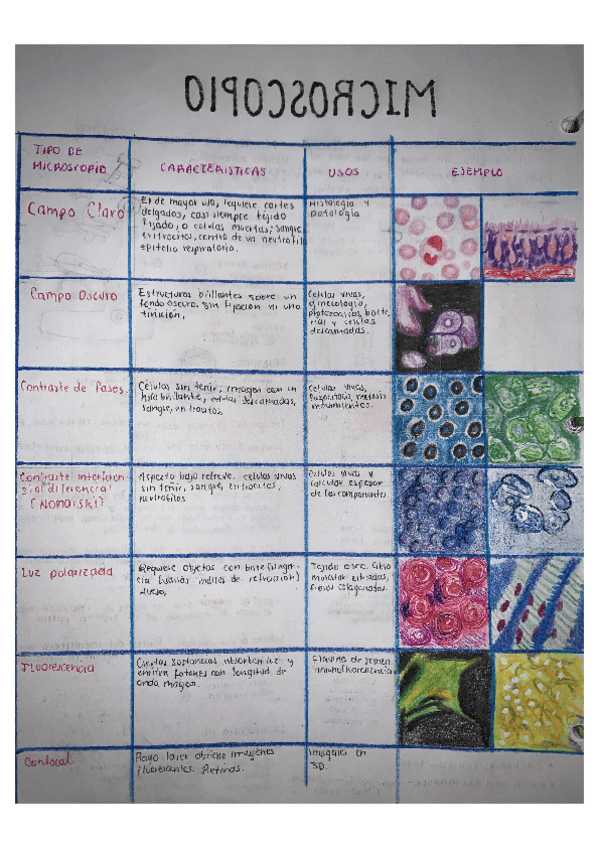 MICROSCOPIO
TIPO DE
MICROSCOPIO
CARACTERISTICAS
USOS
EJEMPLO
Campo Claro
El de mayor uso, requiere cortes
delgados, casi siempre tejido
fijado, o celulas muertas; sangre
eritrocitos, centro de un neutrofilo
epitelio respiratorio.
Histologia y
patologia
Campo Oscuro
Estructuras brillantes sobre un
fondo oscuro. sin fijación ni una
tinición.
Celulas vivas,
ginecologia,
protozoarios, bacte
rias y celulas
descamadas.
Contraste de fases
Células sin teñir, imagen con un
halo brillante, celulas descamadas,
sangre, eritrocitos
Celulas vivas,
Contraste interferen
cial diferencial
(Nomarski)
Aspecto bajo relieve. celulas vivas
sin teñir, sangre, eritrocitos,
neutrofilos
Celulas vivas y
calcular espesor
de los componentes.
Luz polarizada
Requiere objetos con birrefringen-
cia (varios indices de refracción)
Hueso,
Tejido oseo, fibra
muscular estriadas,
fibras colagenadas.
Fluorescencia
Ciertas sustancias absorben luz y
emiten fotones con longitud de
onda mayor.
inmunofluorescencia
Confocal
Rayo laser obtiene imagenes
fluorescentes. Retinas.
Imagenes en
3D.